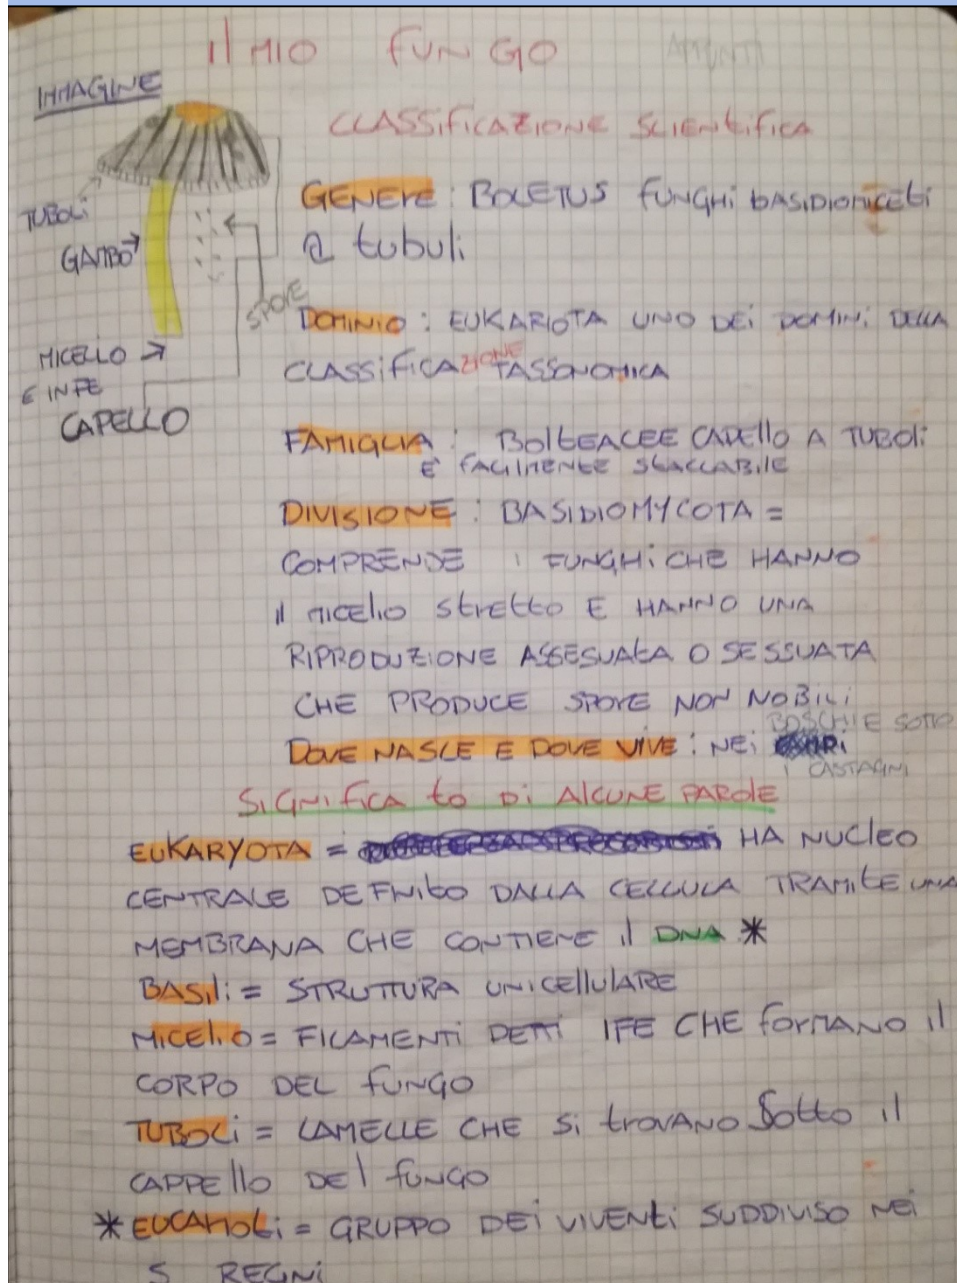 Il MIO FUNGO APPUNTI
IMMAGINE
CLASSIFICAZIONE SCIENtifica
TUBOLi
GAMBO
SPORE
MICELLO
E INFE
CAPELLO
GENERE : BOLETUS FUNGHi bASIDIOMICEti
a tubuli
DOMINIO : EUKARIOTA UNO DEI DOMINI DELLA
CLASSifiCAZIONE TASSONOMICA
FAMIGLIA : BOLtEACEE CAPELLO A TUBOLI
E' FACILMENTE StACCABILE
DIVISIONE : BASIDIOMYCOTA =
COMPRENDE I FUNGHi CHE HANNO
il MICELIO StREttO E HANNO UNA
RIPRODUZIONE ASSESUAtA O SESSUATA
CHE PRODUCE SPORE NON MOBILI
DOVE NASCE E DOVE VIVE : NEi BOSCHI E SOTTO
I CASTAGNI
SIGNIFICAtO DI AlCUNE PAROLE
EUKARYOTA = HA NUCLEO
CENTRALE DEFNItO DALLA CELLULA TRAMItE UNA
MEMBRANA CHE CONTIENE il DNA *
BASILi = STRUTTURA UNICEllULARE
MICELIO = FILAMENTI DETTI IFE CHE FORMANO il
CORPO DEL FUNGO
TUBOLi = LAMELLE CHE Si tROVANO SOtto il
CAPPEllo DEl FUNGO
* EUCARIOti = GRUPPO DEi VIVENti SUDDIVISO NEi
5 REGNI